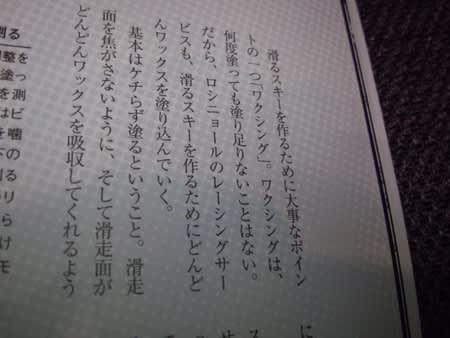 滑るスキーを作るために大事なポイン
トの一つ「ワクシング」。ワクシングは、
何度塗っても塗り足りないことはない。
だから、ロシニョールのレーシングサー
ビスも、滑るスキーを作るためにどんど
んワックスを塗り込んでいく。
基本はケチらず塗るということ。滑走
面を焦がさないように、そして滑走面が
どんどんワックスを吸収してくれるよう
に
ス
せ